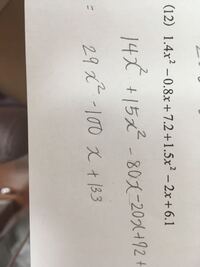 (12) 1.4x² − 0.8x + 7.2 + 1.5x² − 2x + 6.1
14x² + 15x² − 80x − 20x + 92 +
= 29x² − 100x + 133